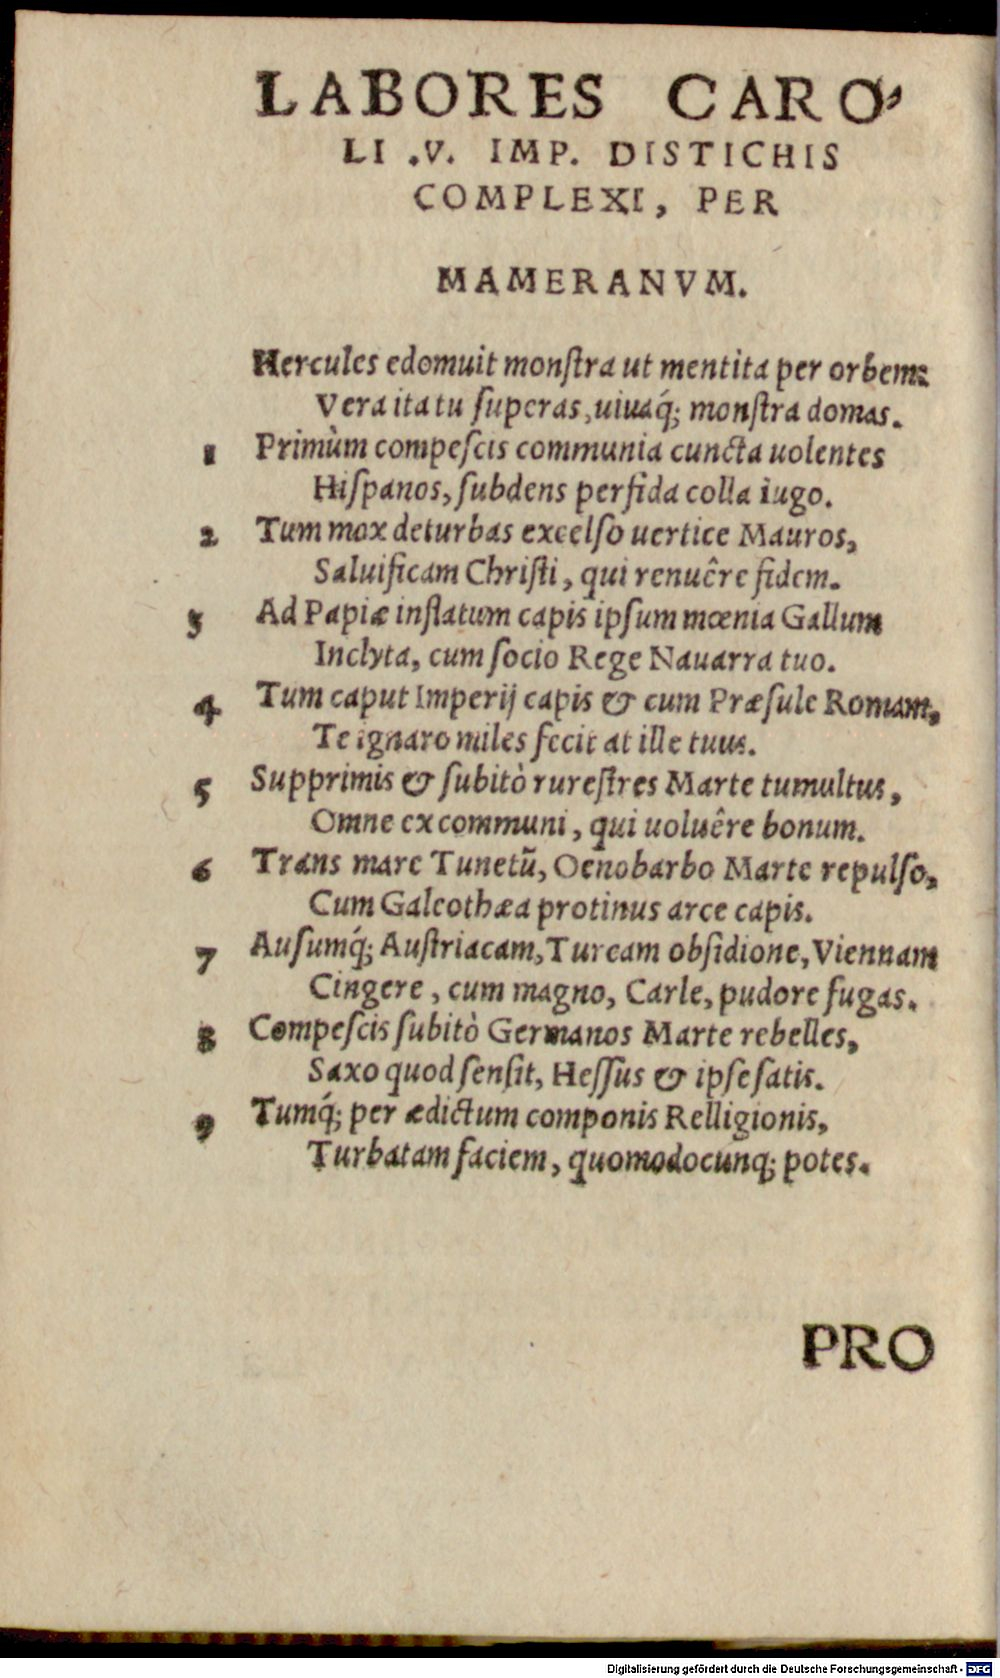 LABORES CARO-
LI .V. IMP. DISTICHIS
COMPLEXI, PER
MAMERANVM.
Hercules edomuit monſtra ut mentita per orbem:
Vera ita tu ſuperas, uiuaq́; monſtra domas.
1 Primùm compeſcis communia cuncta uolentes
Hiſpanos, ſubdens perfida colla iugo.
2 Tum mox deturbas excelſo uertice Mauros,
Saluificam Chriſti, qui renuêre fidem.
3 Ad Papiæ inflatum capis ipſum mœnia Gallum
Inclyta, cum ſocio Rege Nauarra tuo.
4 Tum caput Imperij capis & cum Præſule Romam,
Te ignaro miles fecit at ille tuus.
5 Supprimis & ſubitò rureſtres Marte tumultus,
Omne ex communi, qui uoluêre bonum.
6 Trans mare Tunetũ, Oenobarbo Marte repulſo,
Cum Galeothæa protinus arce capis.
7 Auſumq́; Auſtriacam, Turcam obſidione, Viennam
Cingere, cum magno, Carle, pudore fugas.
8 Compeſcis ſubitò Germanos Marte rebelles,
Saxo quod ſenſit, Heſſus & ipſe ſatis.
9 Tumq́; per ædictum componis Relligionis,
Turbatam faciem, quomodocunq; potes.
PRO
Digitalisierung gefördert durch die Deutsche Forschungsgemeinschaft - DFG